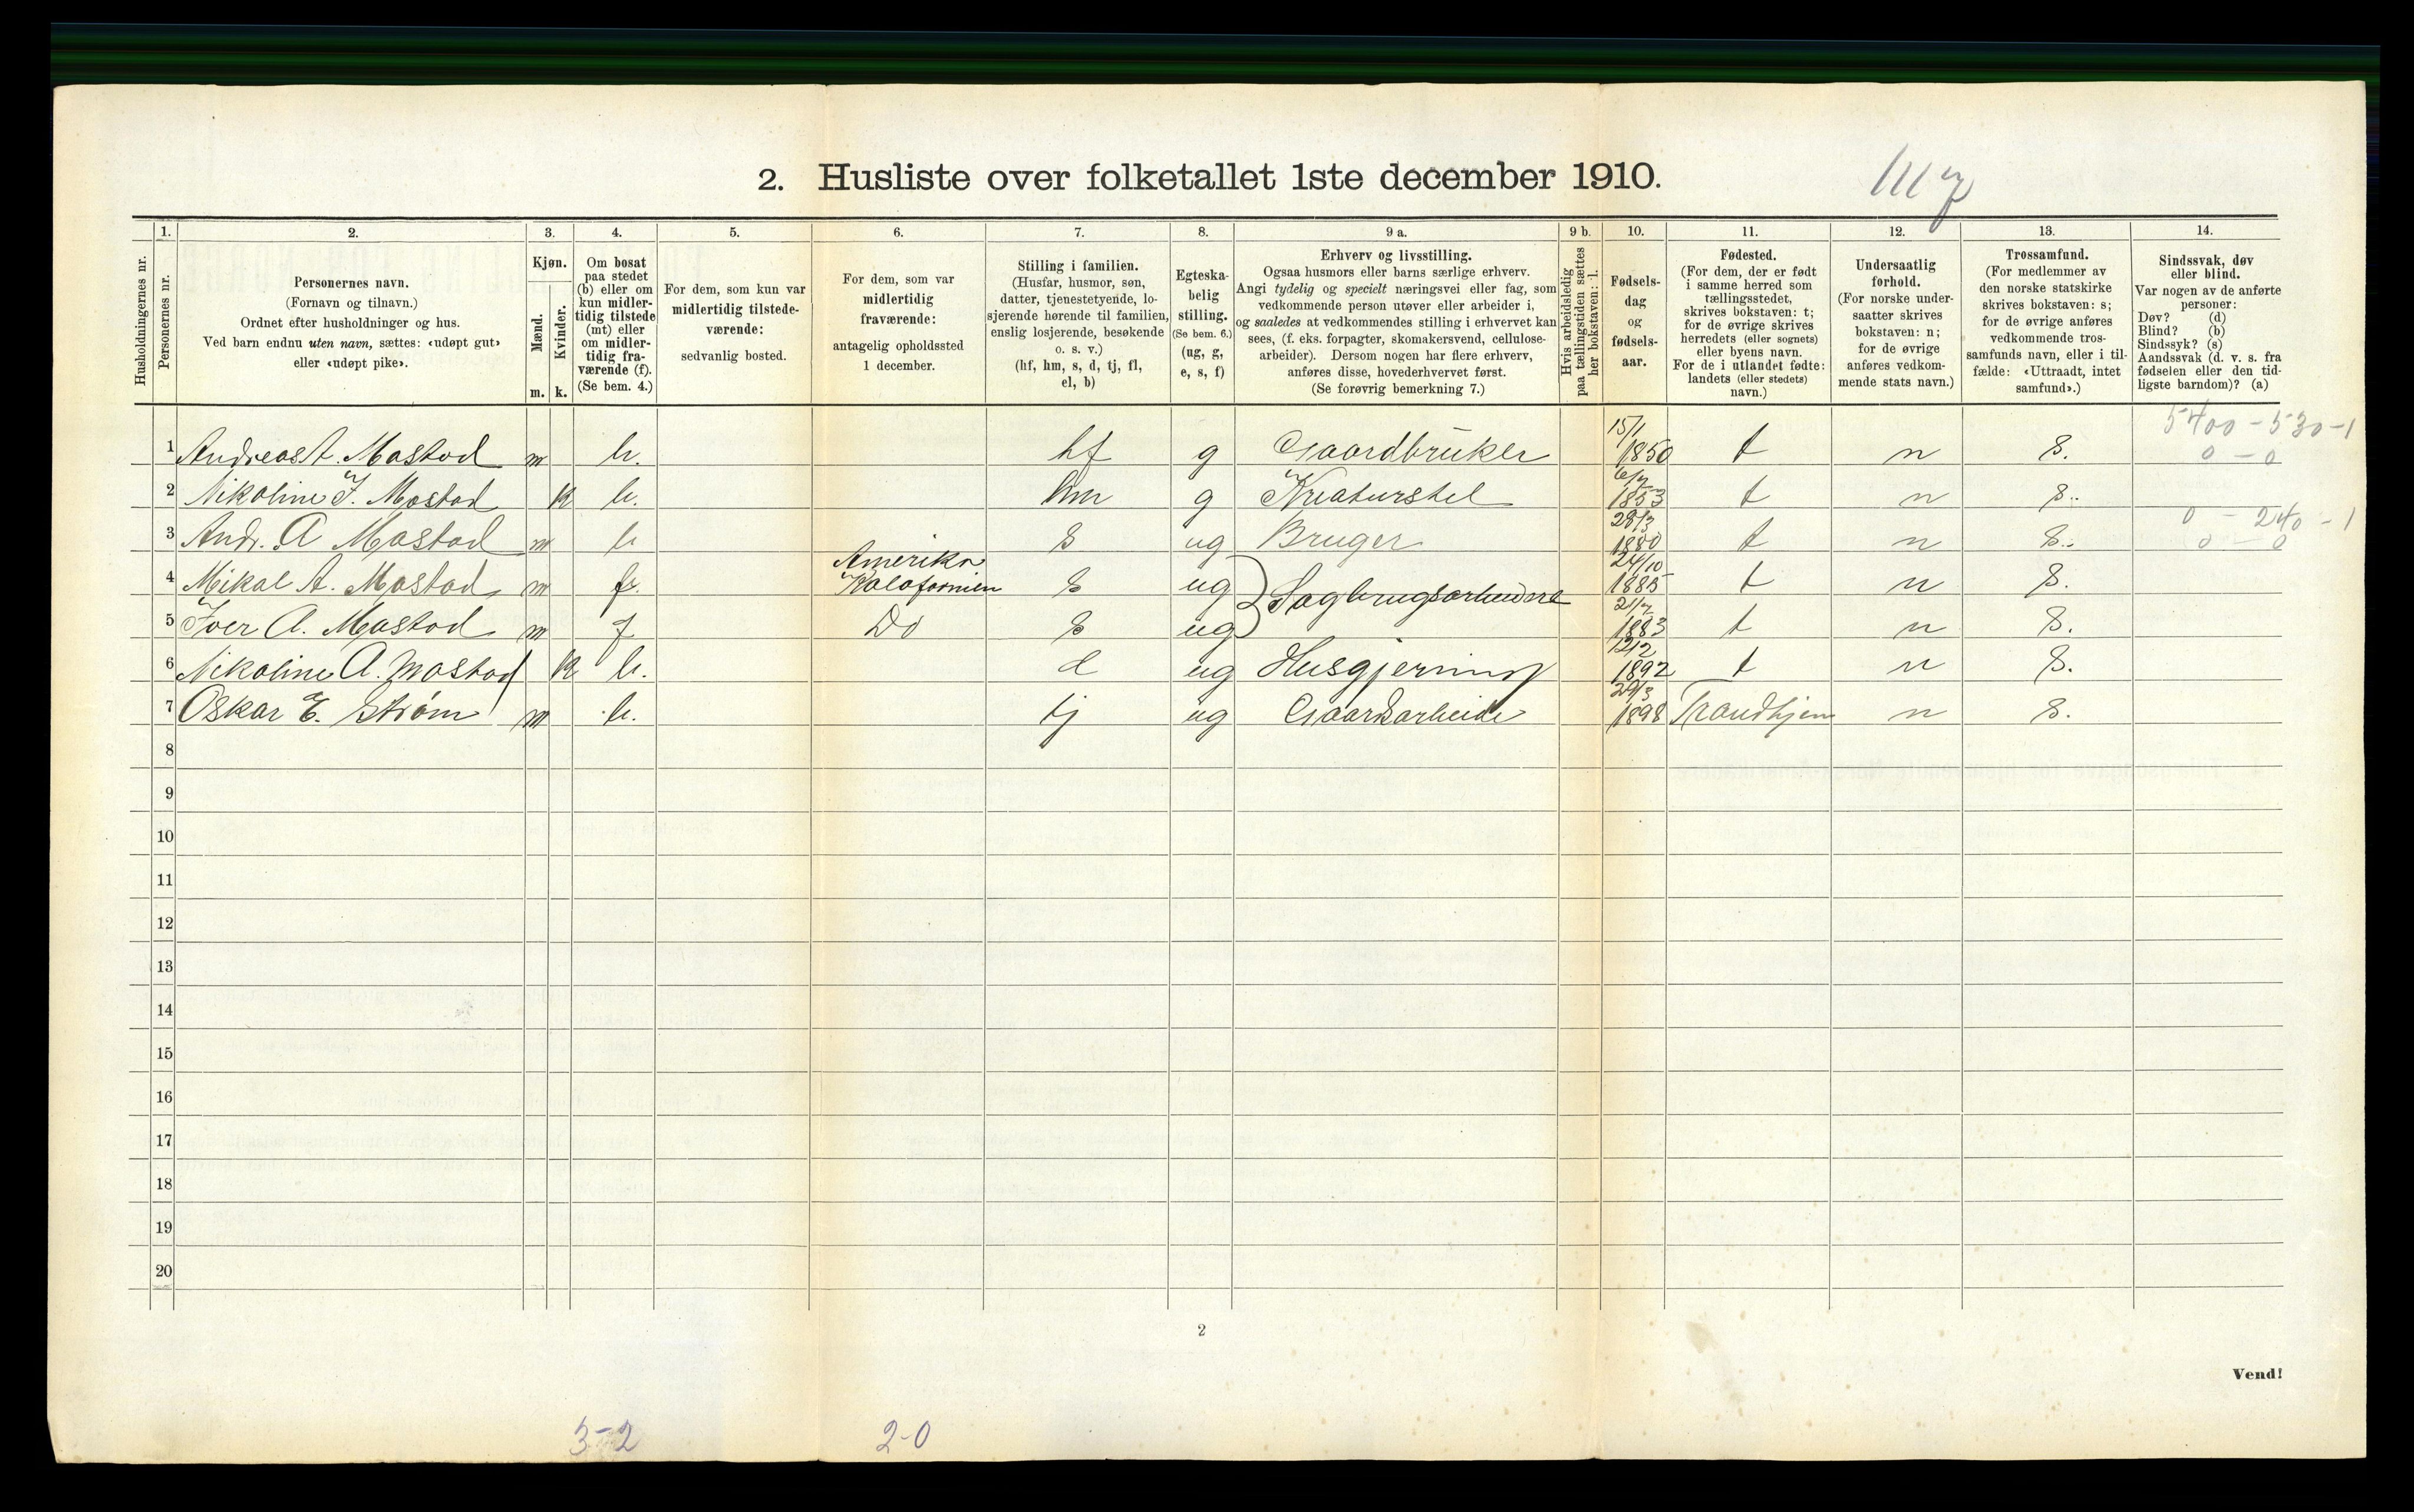 2. Husliste over folketallet 1ste december 1910.
Husholdningernes nr.
1.
Personernes nr.
2.
Personernes navn.
(Fornavn og tilnavn.)
Ordnet efter husholdninger og hus.
Ved barn endnu uten navn, sættes: «udøpt gut»
eller «udøpt pike».
3.
Kjøn.
Mænd.
Kvinder.
m. k.
4.
Om bosat
paa stedet
(b) eller om
kun midler-
tidig tilstede
(mt) eller
om midler-
tidig fra-
værende (f).
(Se bem. 4.)
5.
For dem, som kun var
midlertidig tilstede-
værende:
sedvanlig bosted.
6.
For dem, som var
midlertidig
fraværende:
antagelig opholdssted
1 december.
7.
Stilling i familien.
(Husfar, husmor, søn,
datter, tjenestetyende, lo-
sjerende hørende til familien,
enslig losjerende, besøkende
o. s. v.)
(hf, hm, s, d, tj, fl,
el, b)
8.
Egteska-
belig
stilling.
(Se bem. 6.)
(ug, g,
e, s, f)
9 a.
Erhverv og livsstilling.
Ogsaa husmors eller barns særlige erhverv.
Angi tydelig og specielt næringsvei eller fag, som
vedkommende person utøver eller arbeider i,
og saaledes at vedkommendes stilling i erhvervet kan
sees, (f. eks. forpagter, skomakersvend, cellulose-
arbeider). Dersom nogen har flere erhverv,
anføres disse, hovederhvervet først.
(Se forøvrig bemerkning 7.)
9 b.
Hvis arbeidsledig
paa tællingstiden sættes
her bokstaven: l.
10.
Fødsels-
dag
og
fødsels-
aar.
11.
Fødested.
(For dem, der er født
i samme herred som
tællingsstedet,
skrives bokstaven: t;
for de øvrige skrives
herredets (eller sognets)
eller byens navn.
For de i utlandet fødte:
landets (eller stedets)
navn.)
12.
Undersaatlig
forhold.
(For norske under-
saatter skrives
bokstaven: n;
for de øvrige
anføres vedkom-
mende stats navn.)
13.
Trossamfund.
(For medlemmer av
den norske statskirke
skrives bokstaven: s;
for de øvrige anføres
vedkommende tros-
samfunds navn, eller i til-
fælde: «Uttraadt, intet
samfund».)
14.
Sindssvak, døv
eller blind.
Var nogen av de anførte
personer:
Døv? (d)
Blind? (b)
Sindssyk? (s)
Aandssvak (d. v. s. fra
fødselen eller den tid-
ligste barndom)? (a)
5400 - 530 - 1
1 Andreas A. Mastad m b. hf g Gaardbruker 15/1 1850 t n S. 0 - 0
2 Nikoline J. Mastad k b. hm g Kreaturstel 1853 t n S.
0 - 240 - 1
3 Andr. A Mastad m b s ug Bruger 28/3 1880 t n S. 0 - 0
4 Mikal A. Mastad m f. Amerika Kalofornien s ug Sagbrugsarbeidere 24/10 1885 t n S.
5 Iver A. Mastad m f Do s ug 1883 t n S.
6 Nikoline A. Mastad k b. d ug Husgjerning 1892 t n S.
7 Oskar E. Strøm m b. tj ug Gaardsarbeide 29/3 1898 Trondhjem n S.
8
9
10
11
12
13
14
15
16
17
18
19
20
2
Vend!
3-2 2-0